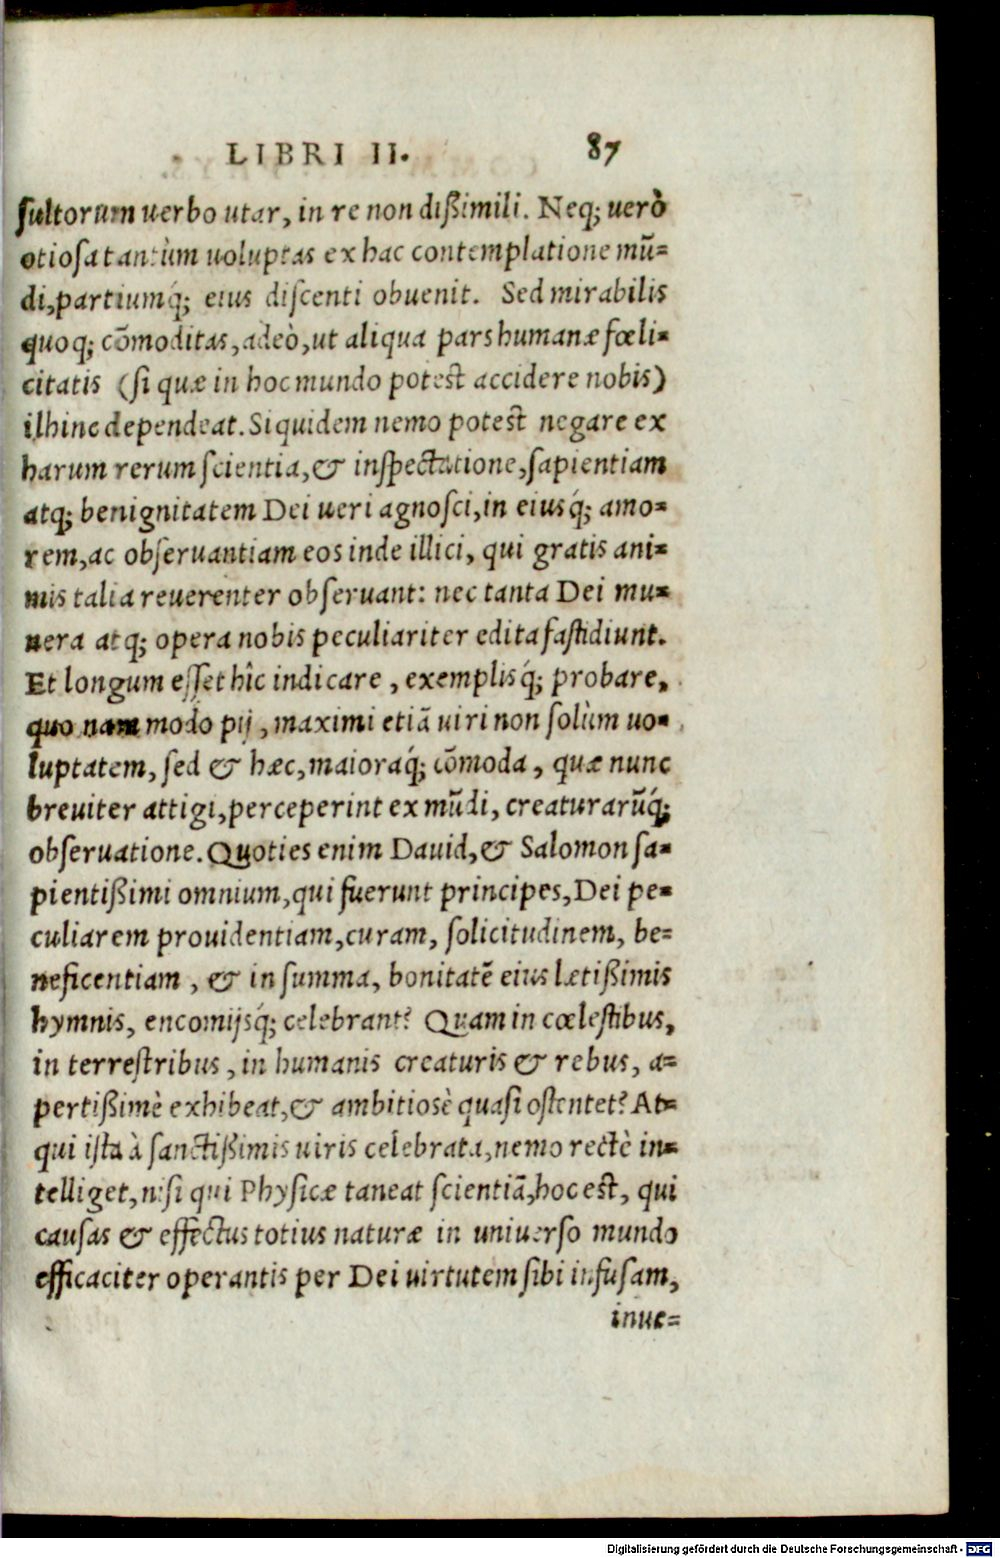 LIBRI II. 87
sultorum uerbo utar, in re non dißimili. Neq; uerò
otiosa tantùm uoluptas ex hac contemplatione mũ=
di, partiumq́; eius discenti obuenit. Sed mirabilis
quoq; cõmoditas, adeò, ut aliqua pars humanæ fœli=
citatis (si quæ in hoc mundo potest accidere nobis)
ilhinc dependeat. Siquidem nemo potest negare ex
harum rerum scientia, & inspectatione, sapientiam
atq; benignitatem Dei ueri agnosci, in eiusq́; amo=
rem, ac obseruantiam eos inde illici, qui gratis ani=
mis talia reuerenter obseruant: nec tanta Dei mu=
nera atq; opera nobis peculiariter edita fastidiunt.
Et longum esset hîc indicare, exemplisq́; probare,
quo nam modo pij, maximi etiã uiri non solùm uo=
luptatem, sed & hæc, maioraq́; cõmoda, quæ nunc
breuiter attigi, perceperint ex mũdi, creaturarũq́;
obseruatione. Quoties enim Dauid, & Salomon sa=
pientißimi omnium, qui fuerunt principes, Dei pe=
culiarem prouidentiam, curam, solicitudinem, be=
neficentiam, & in summa, bonitatẽ eius lætißimis
hymnis, encomijsq́; celebrant? Quam in cœlestibus,
in terrestribus, in humanis creaturis & rebus, a=
pertißimè exhibeat, & ambitiosè quasi ostentet? At=
qui ista à sanctißimis uiris celebrata, nemo rectè in=
telliget, nisi qui Physicæ taneat scientiã, hoc est, qui
causas & effectus totius naturæ in uniuerso mundo
efficaciter operantis per Dei uirtutem sibi infusam,
inue=
Digitalisierung gefördert durch die Deutsche Forschungsgemeinschaft - DFG